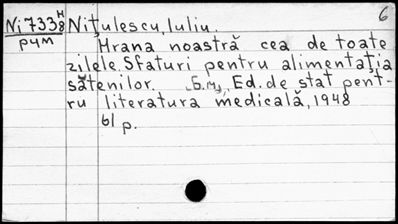 Ni 733 H/8 Nițulescu, Iuliu. 6
рчм Hrana noastră cea de toate
zilele. Sfaturi pentru alimentația
sătenilor. Б.м., Ed. de stat pent-
ru literatura medicală, 1948
61 p.